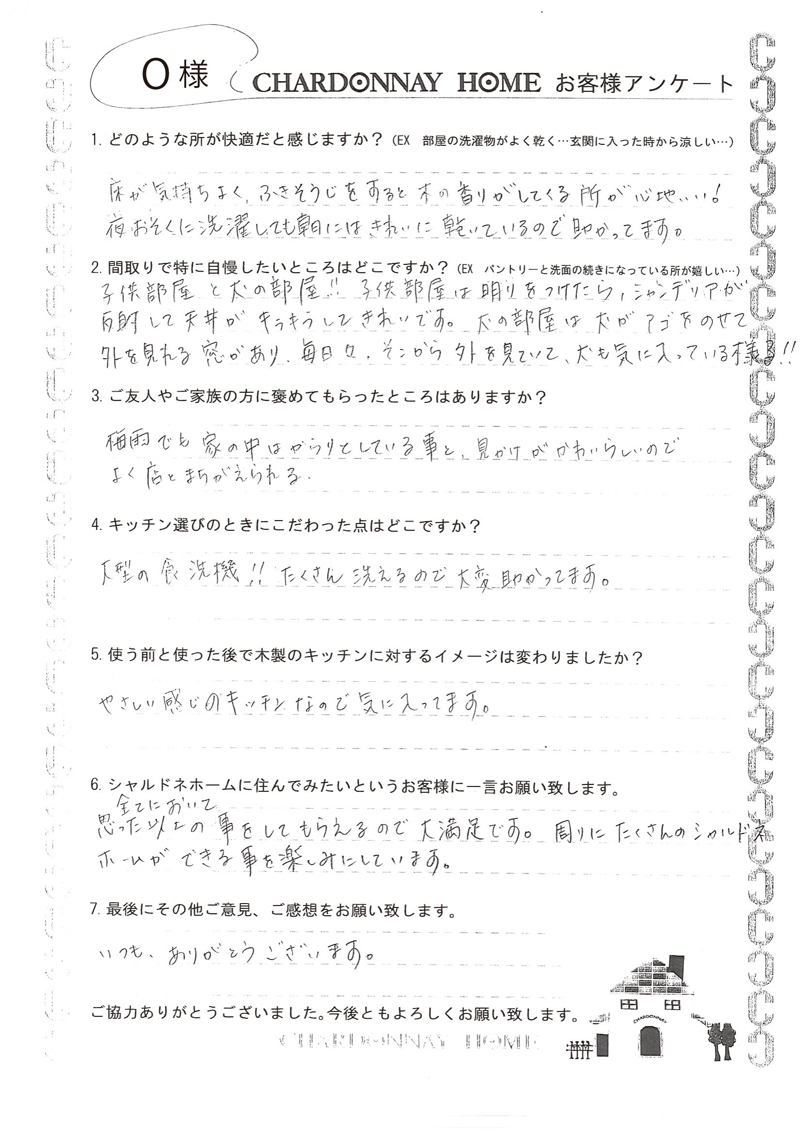 O様
CHARDONNAY HOME お客様アンケート
1. どのような所が快適だと感じますか?(EX 部屋の洗濯物がよく乾く…玄関に入った時から涼しい…)
床が気持ちよく、ふきそうじをすると木の香りがしてくる所が心地いい!
夜おそくに洗濯しても朝にはきれいに乾いているので助かってます。
2. 間取りで特に自慢したいところはどこですか?(EX パントリーと洗面の続きになっている所が嬉しい…)
子供部屋と犬の部屋!! 子供部屋は明りをつけたら、シャンデリアが
反射して天井がキラキラしてきれいです。犬の部屋は犬がアゴをのせて
外を見れる窓があり、毎日々、そこから外を見ていて、犬も気に入っている様る!!
3. ご友人やご家族の方に褒めてもらったところはありますか?
梅雨でも家の中はからりとしている事と、見かけがかわいらしいので
よく店とまちがえられる.
4. キッチン選びのときにこだわった点はどこですか?
大型の食洗機!! たくさん洗えるので大変助かってます。
5. 使う前と使った後で木製のキッチンに対するイメージは変わりましたか?
やさしい感じのキッチンなので気に入ってます。
6. シャルドネホームに住んでみたいというお客様に一言お願い致します。
全てにおいて
思った以上の事をしてもらえるので大満足です。周りにたくさんのシャルドネ
ホームができる事を楽しみにしています。
7. 最後にその他ご意見、ご感想をお願い致します。
いつも、ありがとうございます。
ご協力ありがとうございました。今後ともよろしくお願い致します。
CHARDONNAY
CHARDONNAY HOME